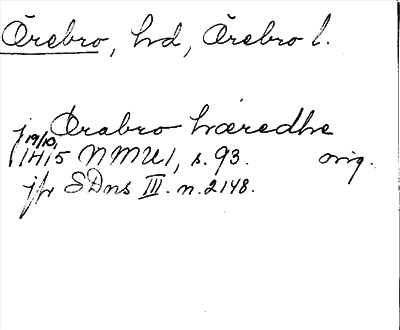 Örebro, hd, Örebro l.
j Ørabro hæredhe
19/10,
1415 NMU 1, s. 93. orig.
jfr SDns III. n. 2148.